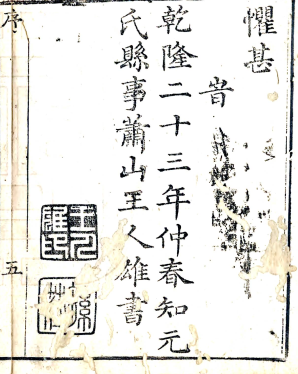 懼甚
旹
乾隆二十三年仲春知元
氏縣事蕭山王人雄書
序
五